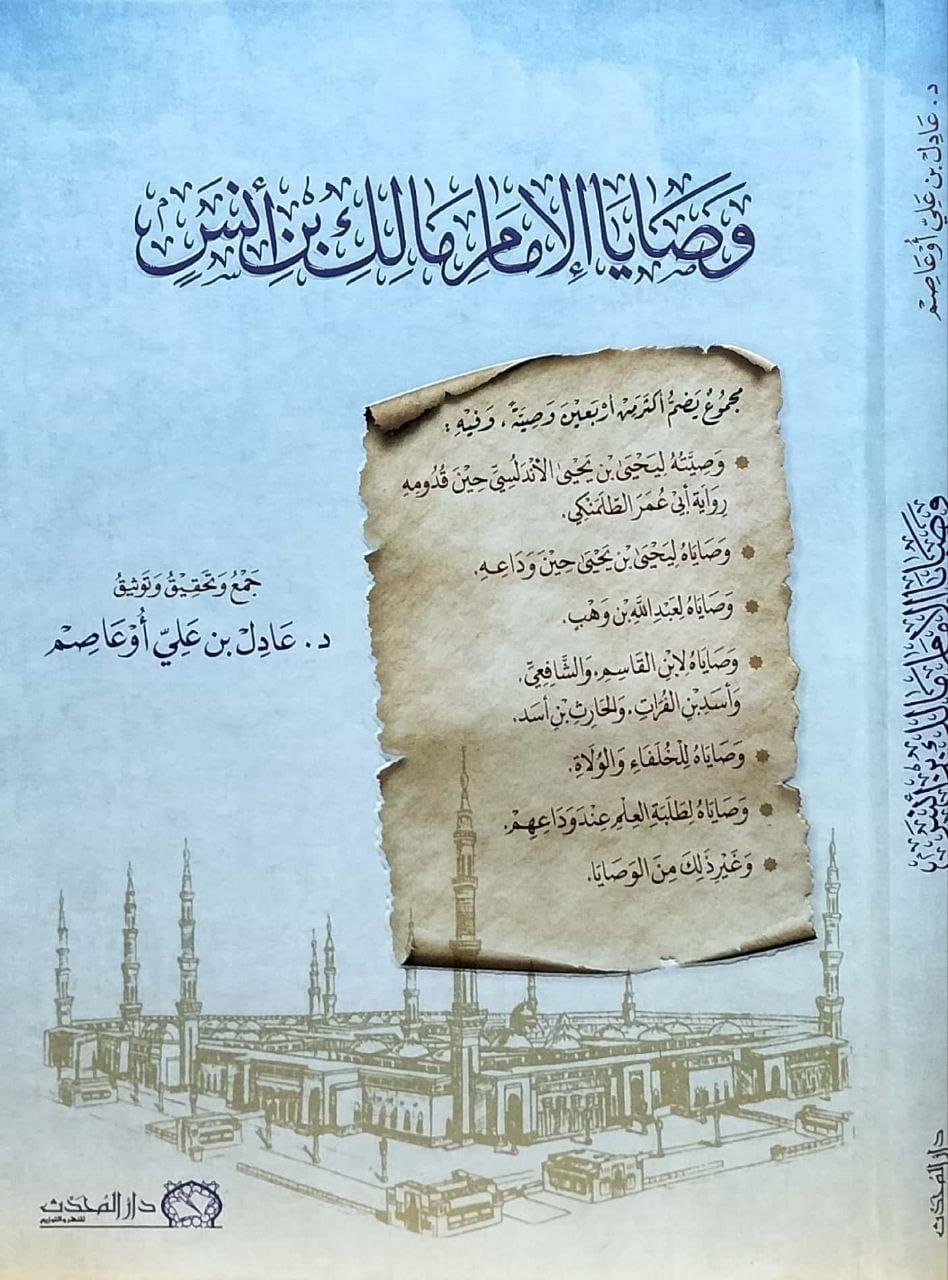 وَصَايَا الإِمَامِ مَالِكِ بْنِ أَنَسٍ
مجمُوعٌ يَضمُّ أكثَرَ مِنْ أرْبَعِيْنَ وَصِيَّةً، وَفيْهِ:
وَصِيَّتُهُ لِيَحْيَى بْنِ يَحْيَى الأَنْدَلُسِيِّ حِيْنَ قُدُومِهِ
رِوَايَة أبي عُمَرَ الطّلَمَنْكِي.
وَصَايَاهُ لِيَحْيَى بْنِ يَحْيَى حِيْنَ وَدَاعِهِ.
وَصَايَاهُ لِعَبْدِ اللَّهِ بْنِ وَهْبٍ.
وَصَايَاهُ لِابْنِ القَاسِمِ، وَالشَّافِعِيِّ،
وَأَسَدِ بْنِ الفُرَاتِ، وَالحَارِثِ بْنِ أَسَد.
وَصَايَاهُ لِلْخُلَفَاءِ وَالوُلَاةِ.
وَصَايَاهُ لِطَلَبَةِ العِلْمِ عِنْدَ وَدَاعِهِمْ.
وَغَيْرِ ذَلِكَ مِنَ الوَصَايَا.
جَمْعُ وَتَحْقِيْقُ وَتَوْثِيقُ
د. عَادِلْ بن عَلِيّ أُوْعَاصِمْ
دار المُحَدّث
للنشر والتوزيع
د. عَادِلْ بن عَلِيّ أُوْعَاصِمْ
وَصَايَا الإِمَامِ مَالِكِ بْنِ أَنَسٍ
دار المُحَدّث